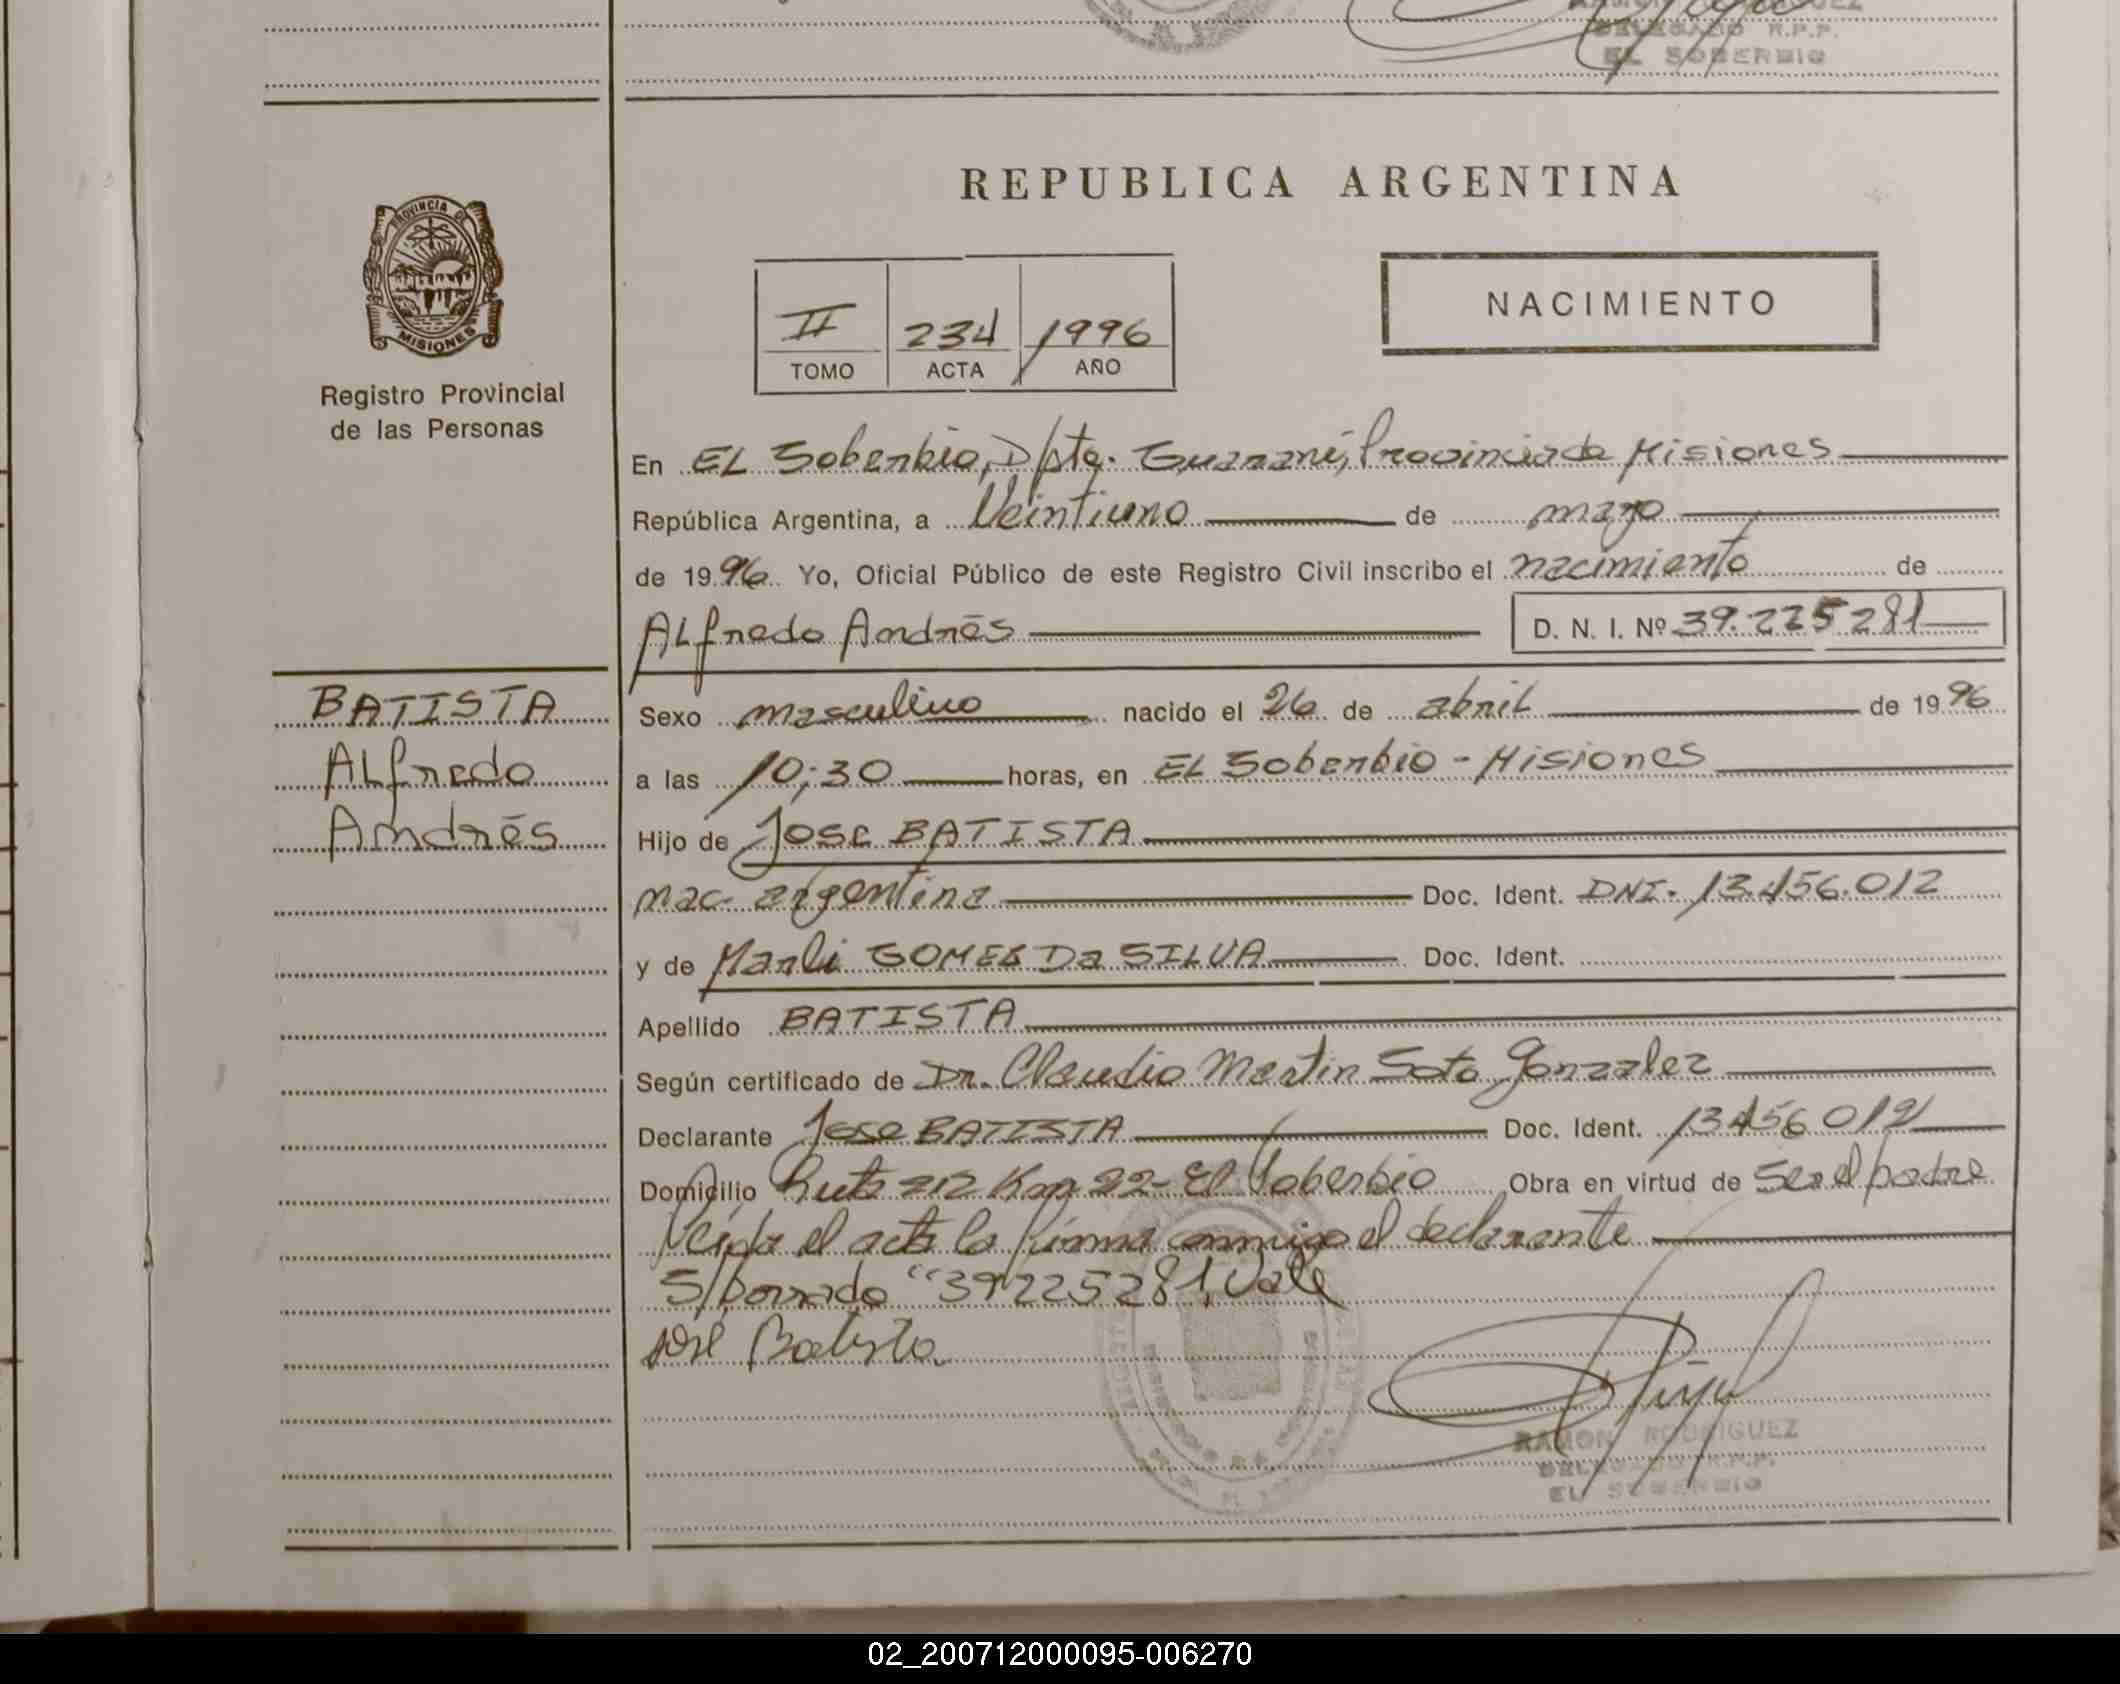 DELEGADO R.P.P.
EL SOBERBIO
PROVINCIA DE
MISIONES
Registro Provincial
de las Personas
REPUBLICA ARGENTINA
NACIMIENTO
II 234 1996
TOMO ACTA AÑO
En EL Soberbio, Dpto. Guaraní, Provincia de Misiones
República Argentina, a Veintiuno de mayo
de 1996 Yo, Oficial Público de este Registro Civil inscribo el nacimiento de
ALfredo Andrés D. N. I. Nº 39.225281
BATISTA
ALfredo
Andrés
Sexo masculino nacido el 26 de abril de 1996
a las 10;30 horas, en EL Soberbio - Misiones
Hijo de Jose BATISTA
nac. argentina Doc. Ident. DNI. 13.456.012
y de Marli GOMES Da SILVA Doc. Ident.
Apellido BATISTA
Según certificado de Dr. Claudio Martin Soto Gonzalez
Declarante Jose BATISTA Doc. Ident. 13456012
Domicilio Ruta 212 Km 22- El Soberbio Obra en virtud de Ser el padre
Leída el acta la firma conmigo el declarante
S/borrado "39225281, Vale
José Batista
RAMON RODRIGUEZ
DELEGADO R.P.P.
EL SOBERBIO
02_200712000095-006270